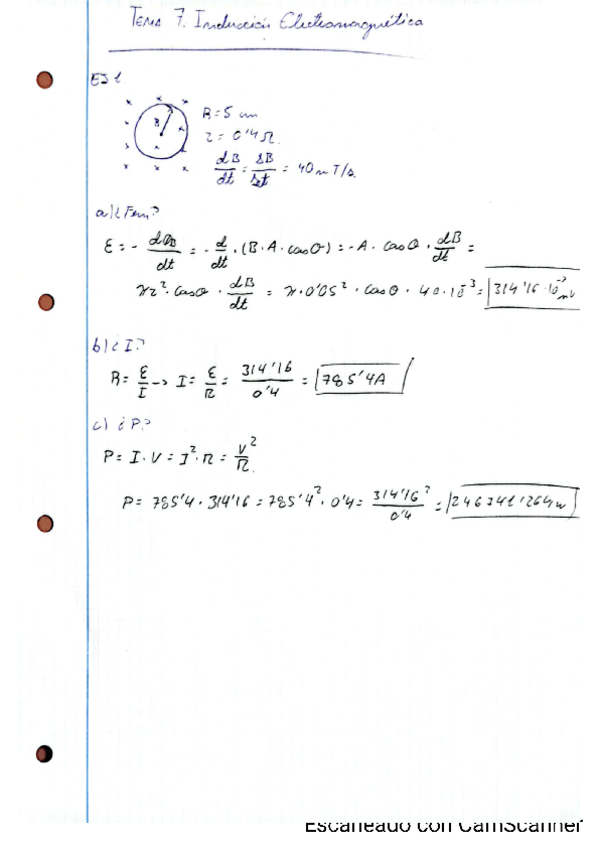 TEMA 7. Inducción Electromagnética
EJ 1
R
R = 5 cm
r = 0'4 Ω
dB/dt = ΔB/Δt = 40 mT/s
a) ¿Fem?
ε = - dΦB/dt = - d/dt · (B · A · cos θ) = - A · cos θ · dB/dt =
πr² · cos θ · dB/dt = π · 0'05² · cos θ · 40 · 10⁻³ = 314'16 · 10⁻³ mV
b) ¿I?
R = ε/I → I = ε/R = 314'16/0'4 = 785'4A
c) ¿P?
P = I · V = I² · R = V²/R
P = 785'4 · 314'16 = 785'4² · 0'4 = 314'16²/0'4 =
Escaneado con CamScanner